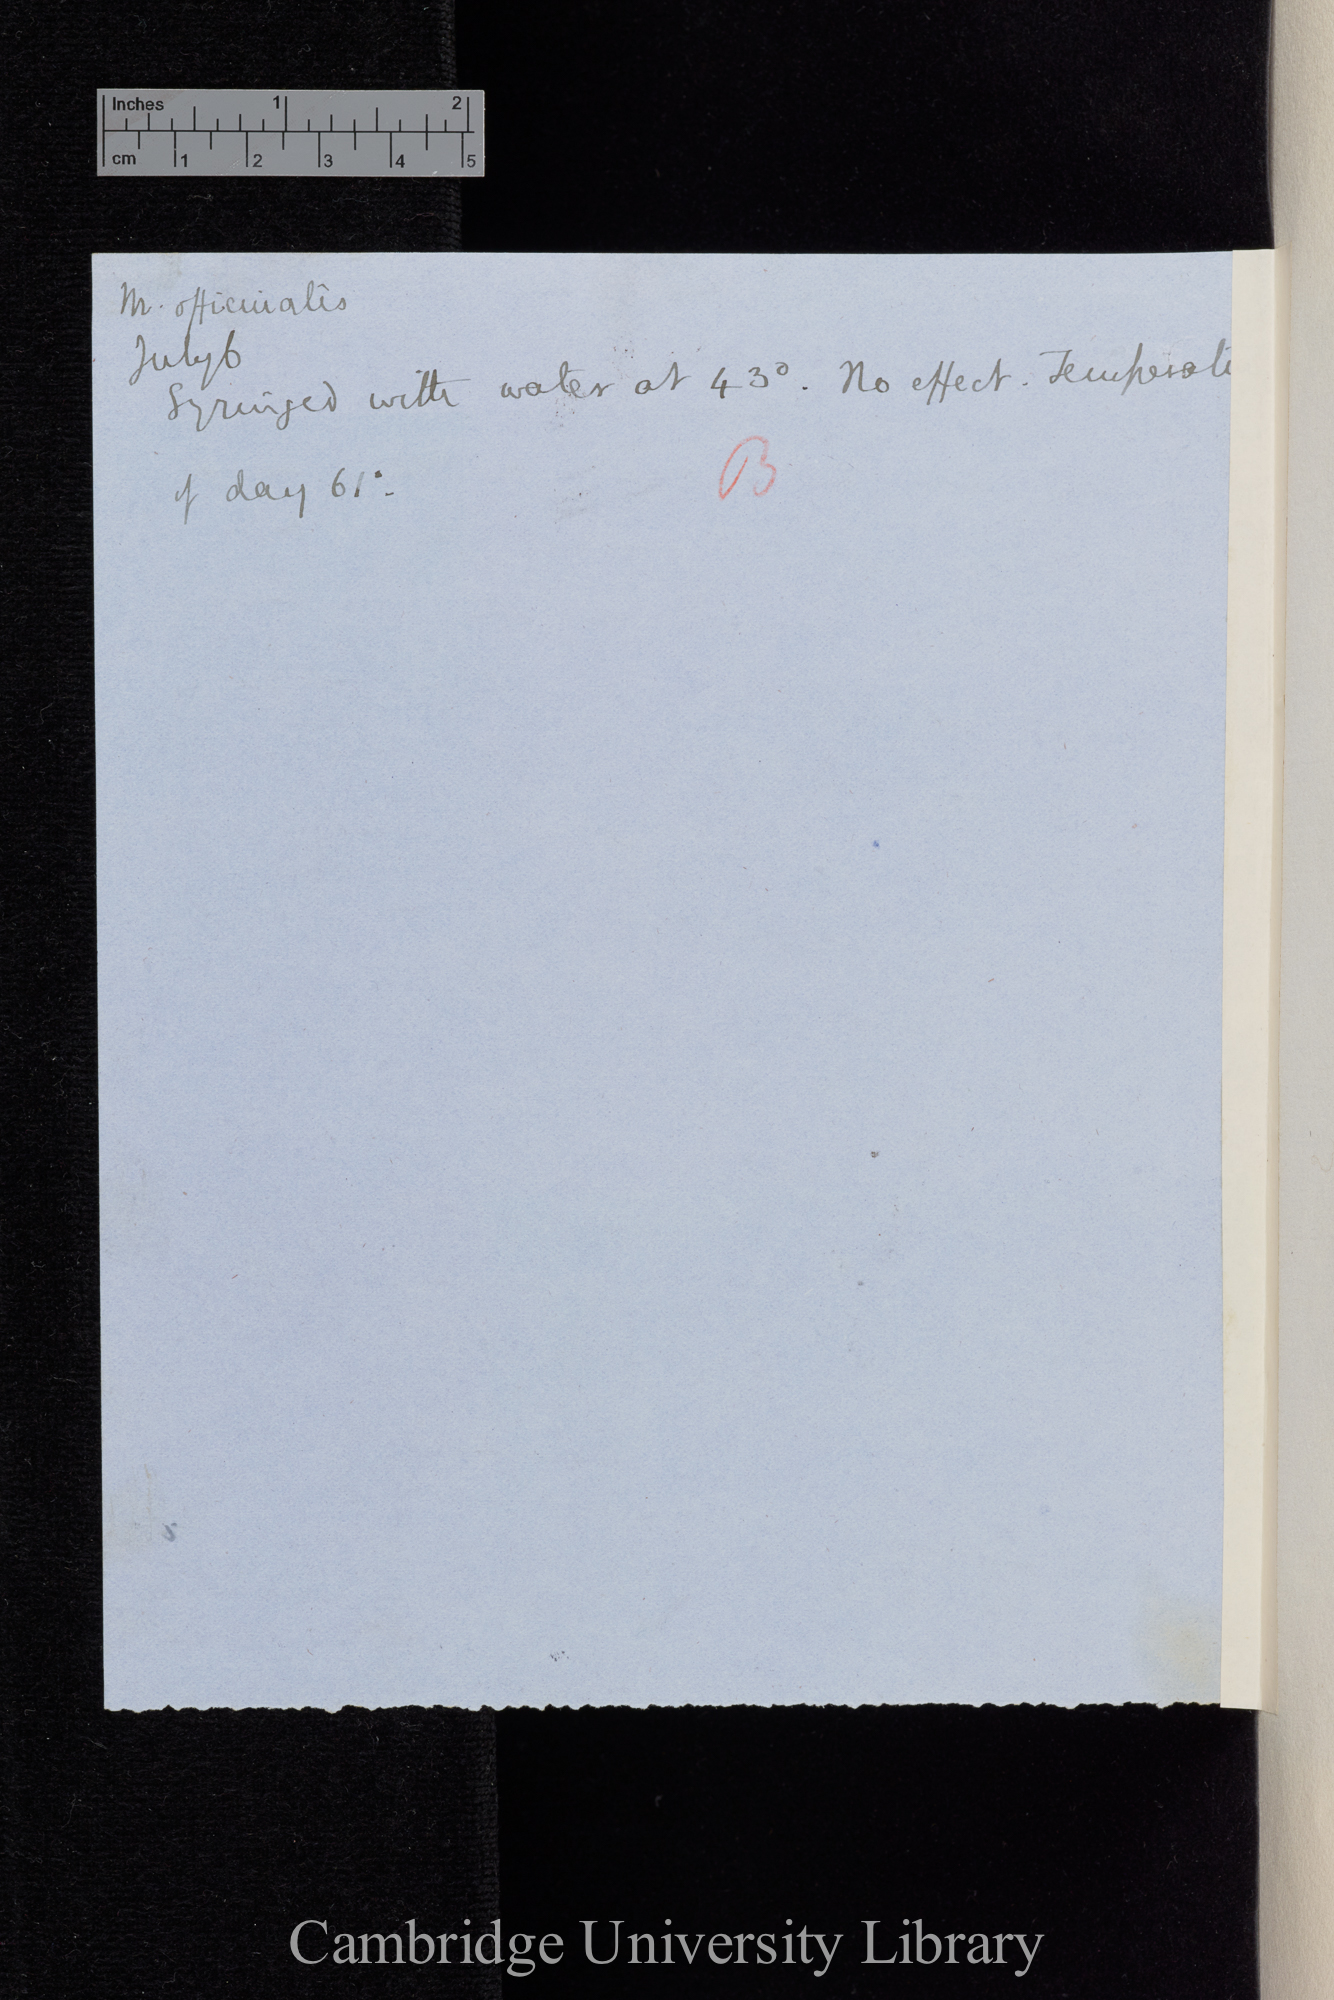 Inches 1 2
cm 1 2 3 4 5
M. officinalis
July 6
Syringed with water at 43°. No effect. Temperat
of day 61°.
B
Cambridge University Library